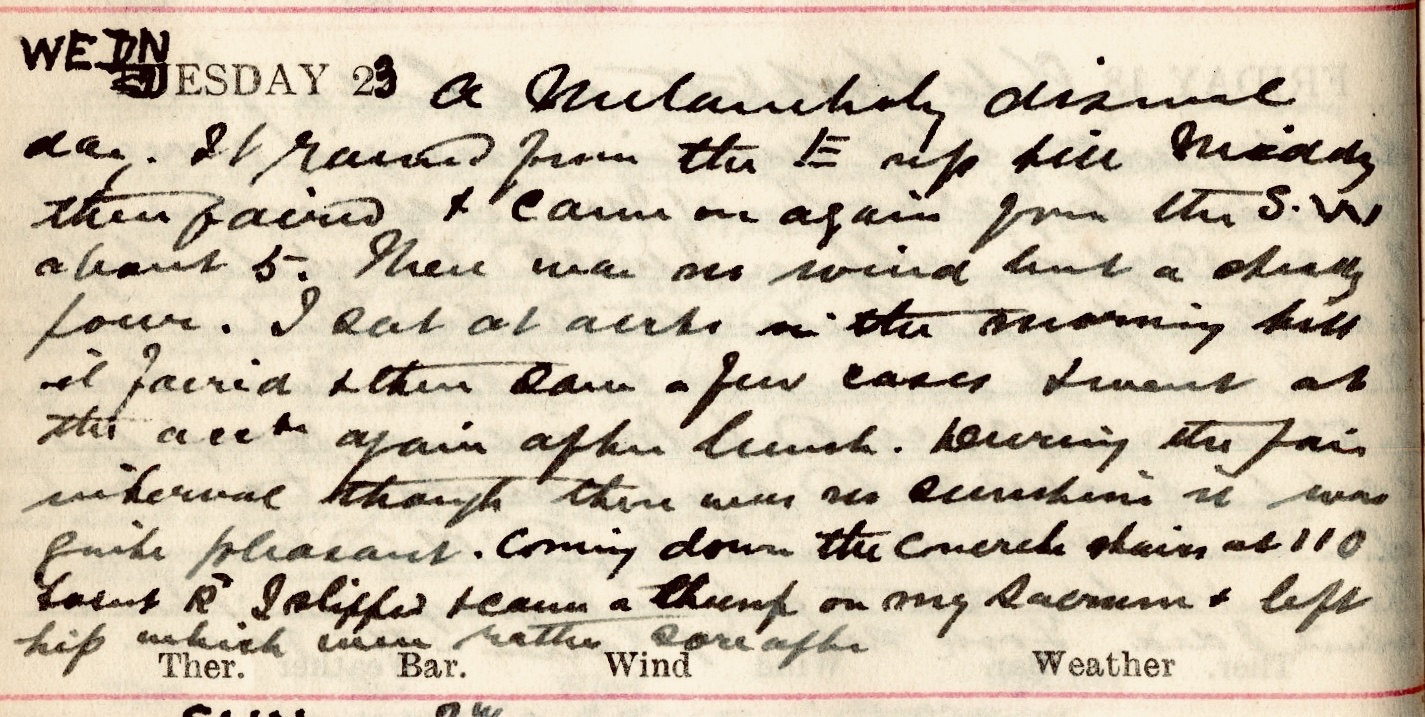 WEDN
TUESDAY 23 A Melancholy dismal
day. It rained from the E up till Midday
then faired & came on again from the S.W
about 5. There was no wind but a steady
pour. I sat at accts in the morning till
it faired & then saw a few cases & went at
the accts again after lunch. During the fair
interval though there was no sunshine it was
quite pleasant. Coming down the concrete stairs at 110
R<sup>d</sup> I slipped & came a thump on my Sacrum & left
hip which were rather sore after
Ther. Bar. Wind Weather
SUN